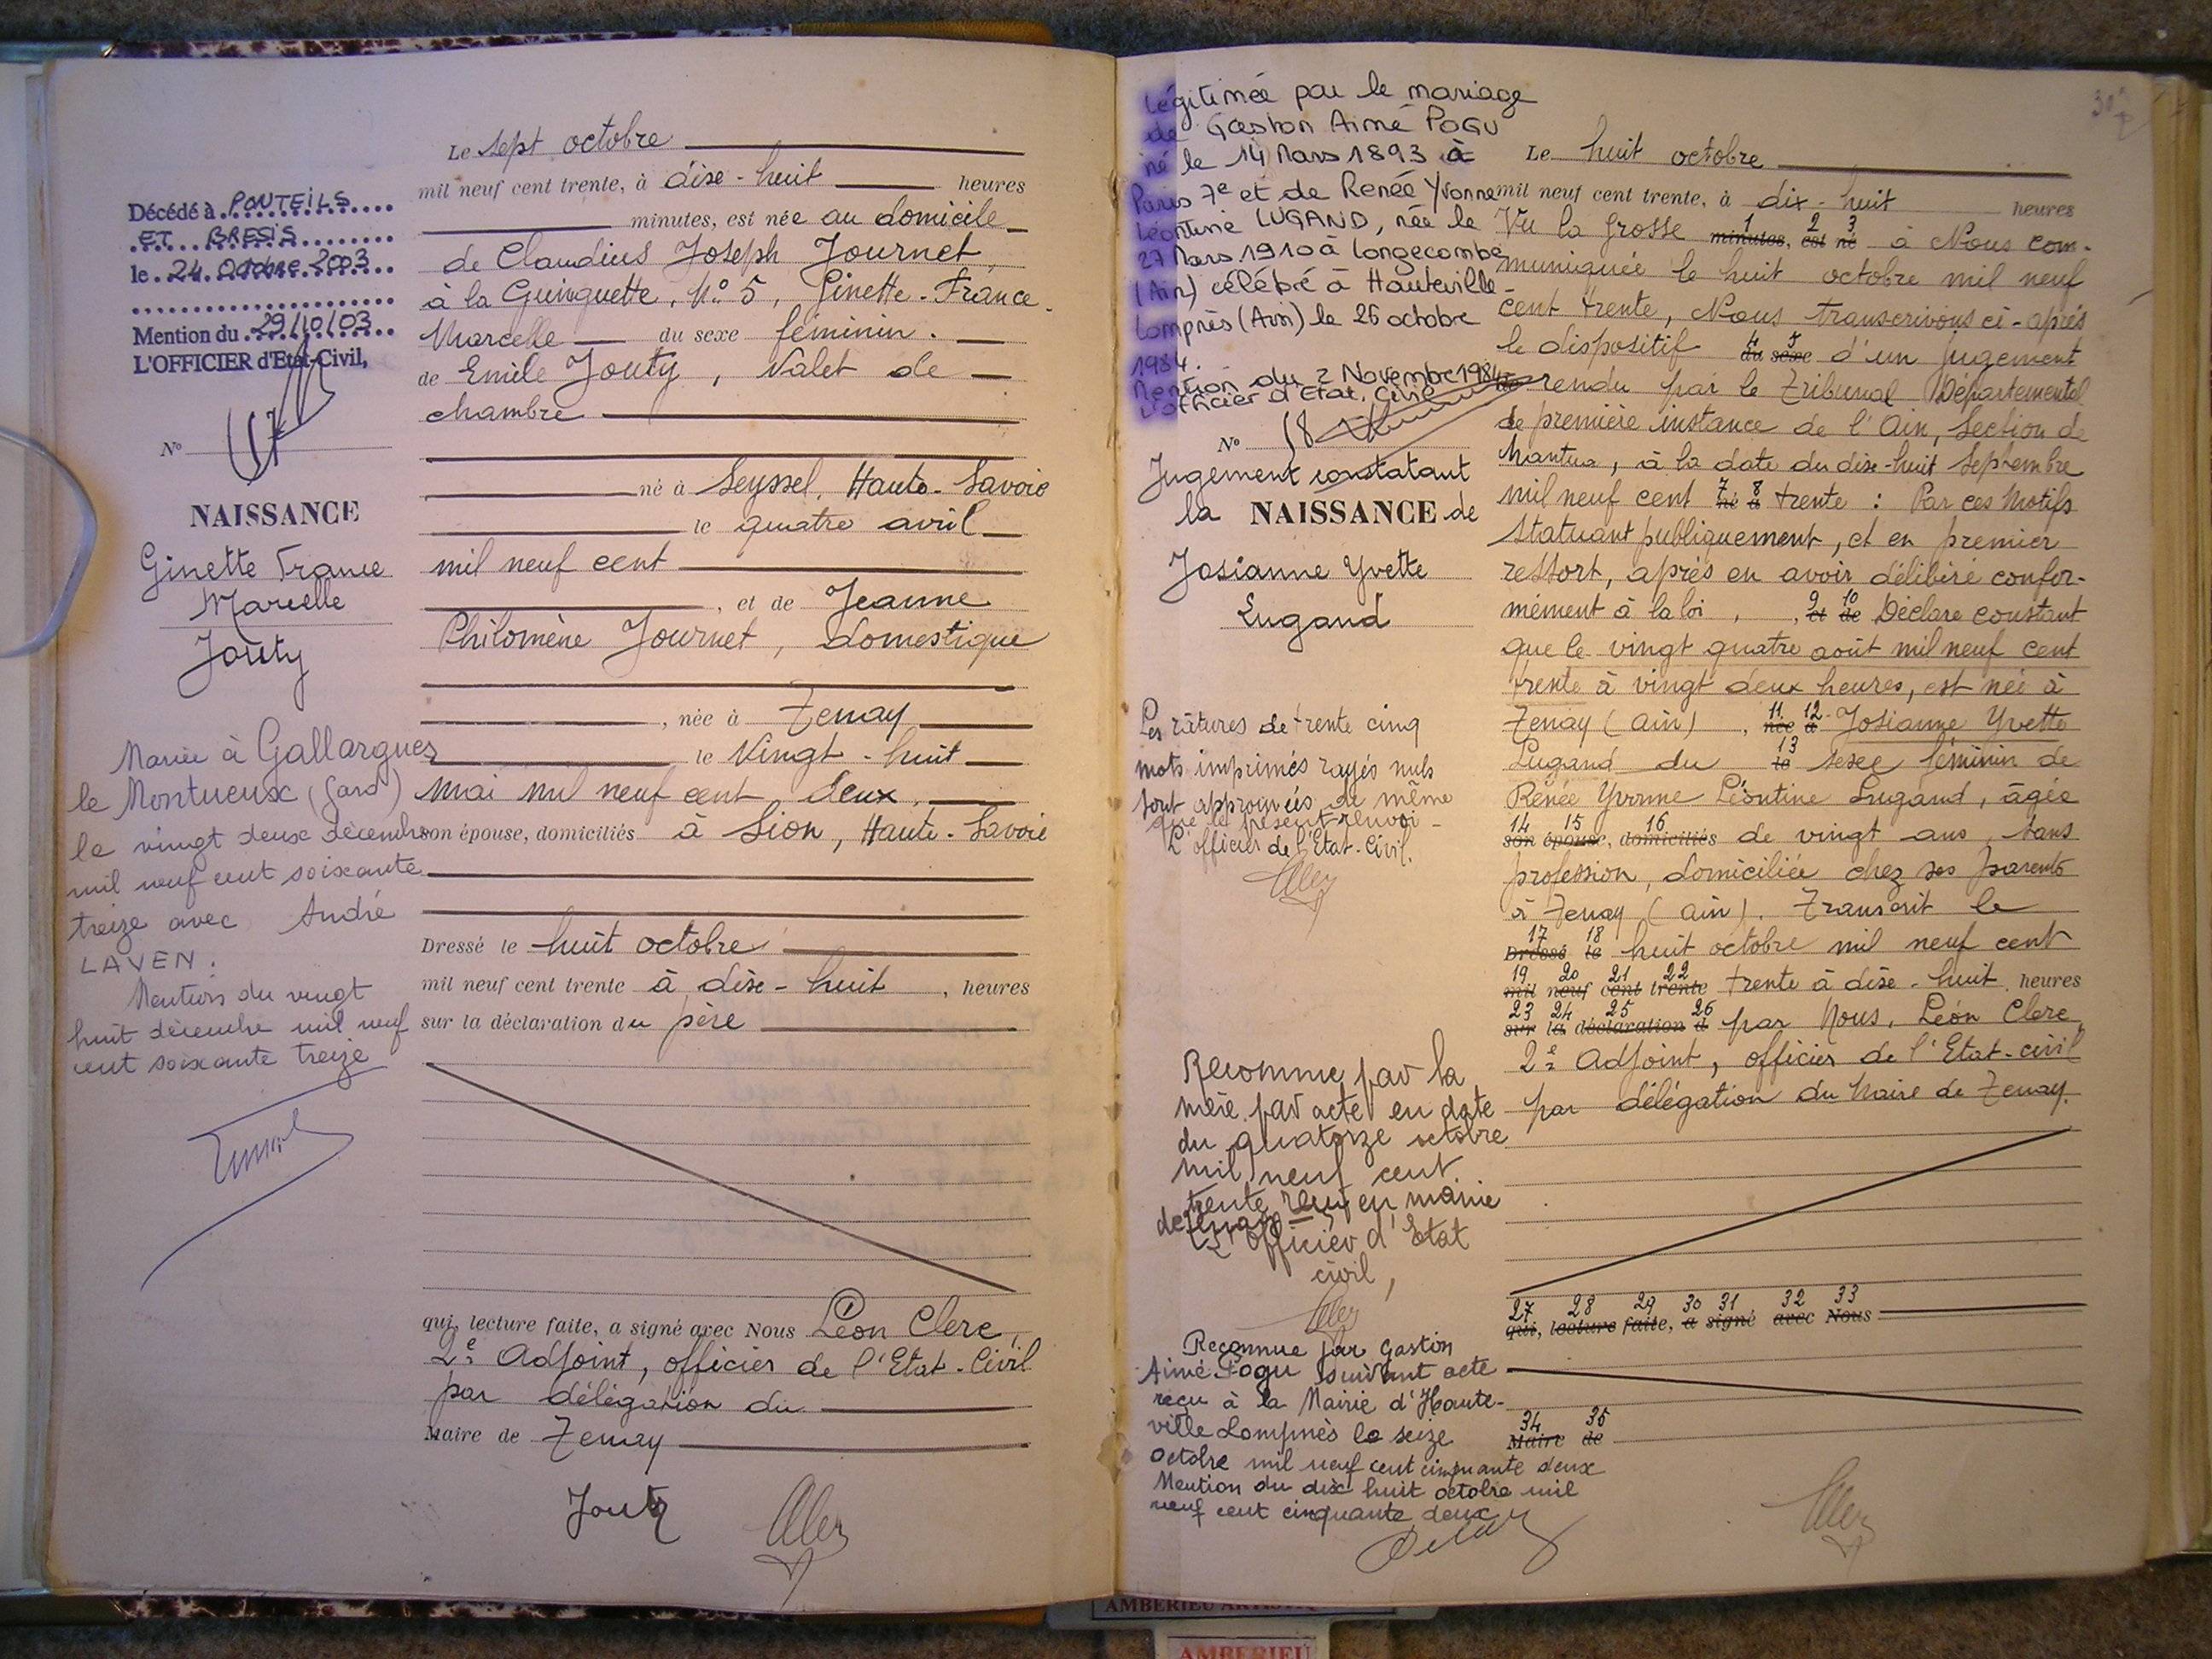 Décédé à PONTEILS
ET BRESIS
le 24 octobre 2003
Mention du 29/10/03
L'OFFICIER d'Etat-Civil,
No 17
NAISSANCE
Ginette France
Marcelle
Jouty
Mariée à Gallargues
le Montueux (Gard)
le vingt deux décembre
mil neuf cent soixante
treize avec André
LAVEN.
Mention du vingt
huit décembre mil neuf
cent soixante treize
Le sept octobre
mil neuf cent trente, à dix-huit heures
minutes, est née au domicile
de Claudius Joseph Journet,
à la Guinguette, No 5, Ginette-France-
Marcelle du sexe féminin.
de Emile Jouty, Valet de
chambre
né à Seyssel, Haute-Savoie
le quatre avril
mil neuf cent
, et de Jeanne
Philomène Journet, domestique
, née à Tenay
le Vingt-huit
mai mil neuf cent deux,
son épouse, domiciliés à Sion, Haute-Savoie
Dressé le huit octobre
mil neuf cent trente à dix-huit, heures
sur la déclaration du père
qui, lecture faite, a signé avec Nous Léon Clerc,
2e Adjoint, officier de l'Etat-Civil
par délégation du
Maire de Tenay
Jouty
Légitimée par le mariage
de Gaston Aimé POGU
né le 14 Mars 1893 à
Paris 7e et de Renée Yvonne
Léontine LUGAND, née le
27 Mars 1910 à Longecombe
(Ain) célébré à Hauteville-
Lompnès (Ain) le 26 octobre
1984.
Mention du 2 Novembre 1984
L'officier d'Etat. Civil
No 18
Jugement constatant
la NAISSANCE de
Josianne Yvette
Lugand
Les ratures de trente cinq
mots imprimés rayés nuls
sont approuvés de même
que le présent renvoi -
L'officier de l'Etat-Civil.
Reconnue par la
mère par acte en date
du quatorze octobre
mil neuf cent
trente reçu en mairie
de Tenay
L'Officier d'Etat
civil,
Reconnue par Gaston
Aimé Pogu suivant acte
reçu à la Mairie d'Haute-
ville Lompnès le seize
octobre mil neuf cent cinquante deux
Mention du dix huit octobre mil
neuf cent cinquante deux
Le huit octobre
mil neuf cent trente, à dix-huit heures
Vu la grosse 1 minutes, 2 est 3 né à Nous com-
muniquée le huit octobre mil neuf
cent trente, Nous transcrivons ci-après
le dispositif 4 du 5 sexe d'un jugement
de rendu par le Tribunal Départemental
de première instance de l'Ain, Section de
Nantua, à la date du dix-huit Septembre
mil neuf cent 7 né 8 à trente : Par ces Motifs
Statuant publiquement, et en premier
ressort, après en avoir délibéré confor-
mément à la loi, , 9 et 10 de Déclare constant
que le vingt quatre août mil neuf cent
trente à vingt deux heures, est née à
Tenay (Ain), 11 née 12 à Josianne Yvette
Lugand du 13 le sexe féminin de
Renée Yvonne Léontine Lugand, âgée
14 son 15 épouse, 16 domiciliés de vingt ans, sans
profession, domiciliée chez ses parents
à Tenay (Ain). Transcrit le
17 Dressé 18 le huit octobre mil neuf cent
19 mil 20 neuf 21 cent 22 trente trente à dix-huit, heures
23 sur 24 la 25 déclaration 26 d par Nous, Léon Clerc,
2e Adjoint, officier de l'Etat-civil
par délégation du Maire de Tenay.
27 qui, 28 lecture 29 faite, 30 a 31 signé 32 avec 33 Nous
34 Maire 35 de
AMBERIEU